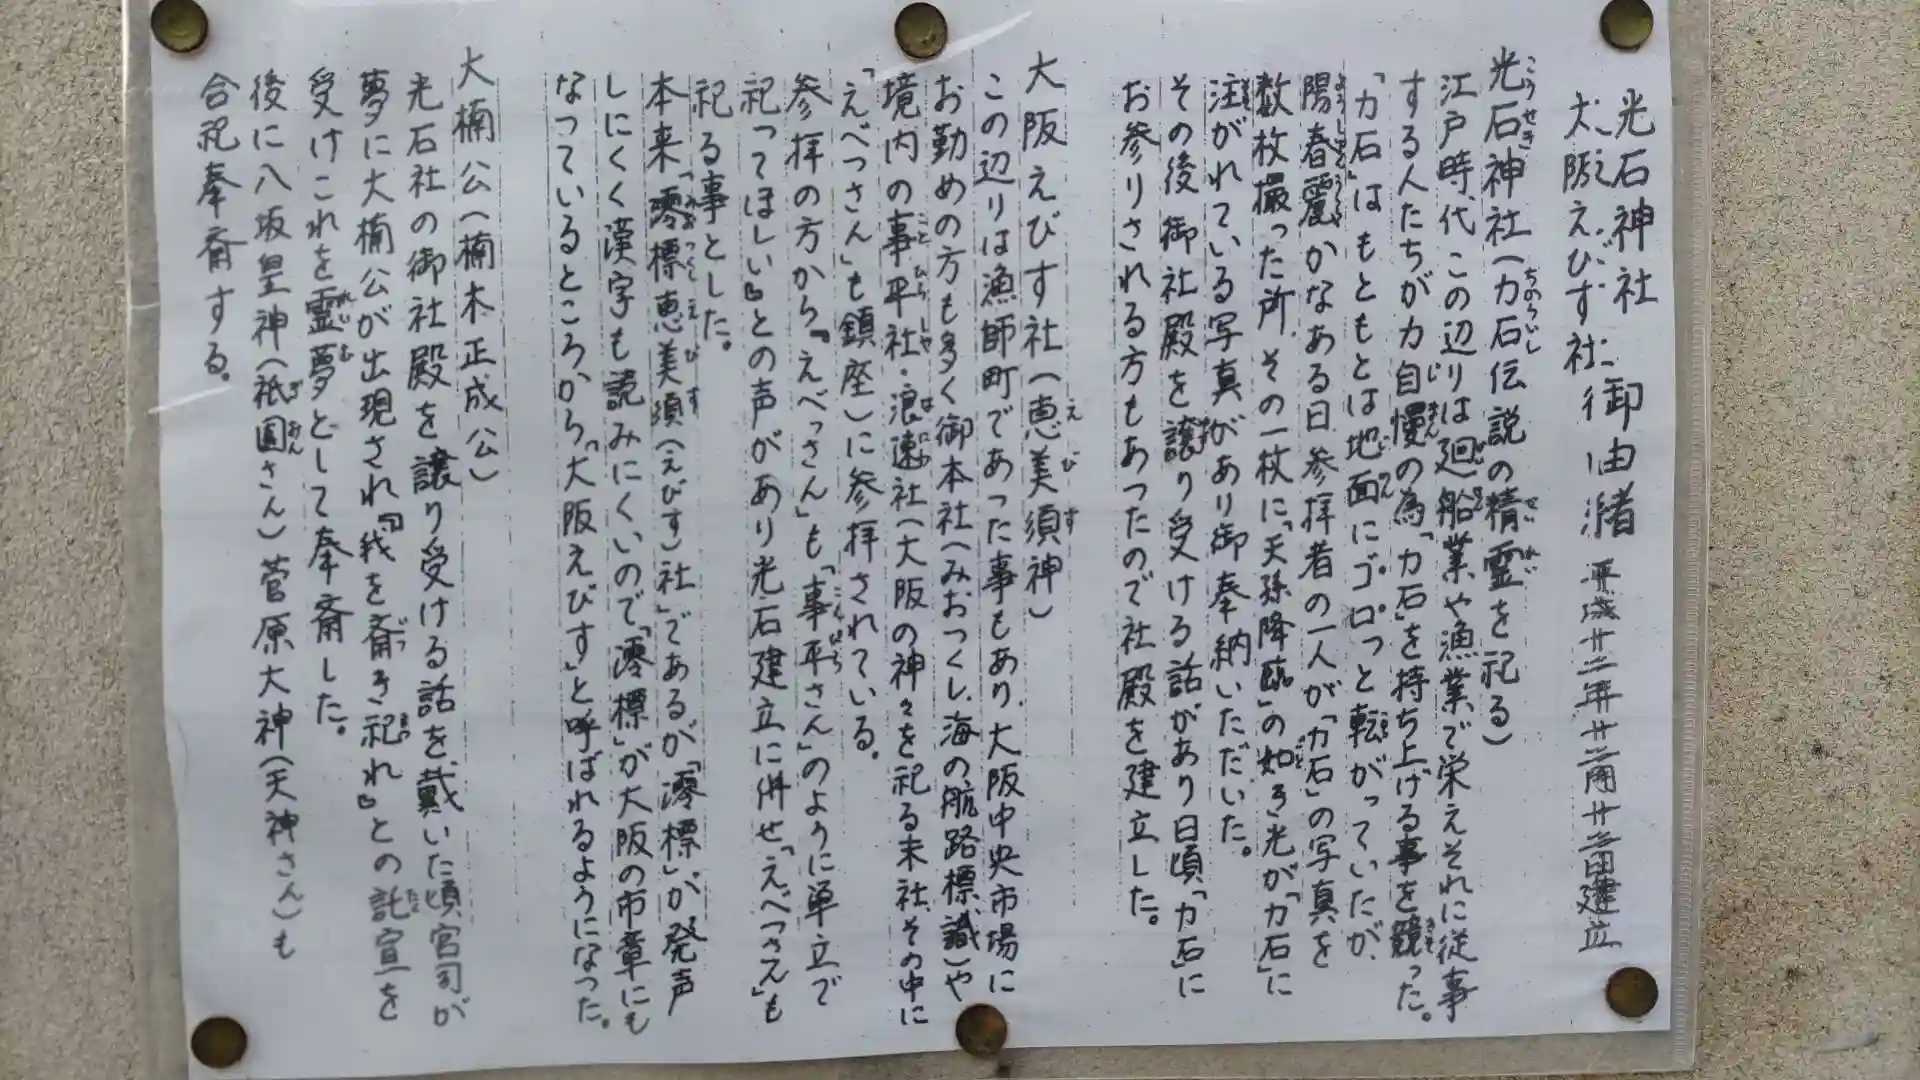 光石神社
大阪えびす社 御由緒 平成廿二年廿二月廿三日建立
光石神社(力石伝説の精霊を祀る)
江戸時代この辺りは廻船業や漁業で栄えそれに従事
する人たちが力自慢の為「力石」を持ち上げる事を競った。
「力石」はもともとは地面にゴロっと転がっていたが、
陽春麗かなある日参拝者の一人が「力石」の写真を
数枚撮った所、その一枚に「天孫降臨」の如き光が「力石」に
注がれている写真があり御奉納いただいた。
その後御社殿を譲り受ける話があり日頃「力石」に
お参りされる方もあったので社殿を建立した。
大阪えびす社(恵美須神)
この辺りは漁師町であった事もあり、大阪中央市場に
お勤めの方も多く御本社(みおつくし海の航路標識)や
境内の事平社・浪速社(大阪の神々を祀る末社、その中に
「えべっさん」も鎮座)に参拝されている。
参拝の方から『えべっさん」も「事平さん」のように単立で
祀ってほしい』との声があり光石建立に併せ「えべっさん」も
祀る事とした。
本来「澪標恵美須(えびす)社」であるが「澪標」が発声
しにくく漢字も読みにくいので「澪標」が大阪の市章にも
なっているところから「大阪えびす」と呼ばれるようになった。
大楠公(楠木正成公)
光石社の御社殿を譲り受ける話を戴いた頃宮司が
夢に大楠公が出現され『我を斎き祀れ』との託宣を
受けこれを霊夢として奉斎した。
後に八坂皇神(祇園さん)菅原大神(天神さん)も
合祀奉斎する。